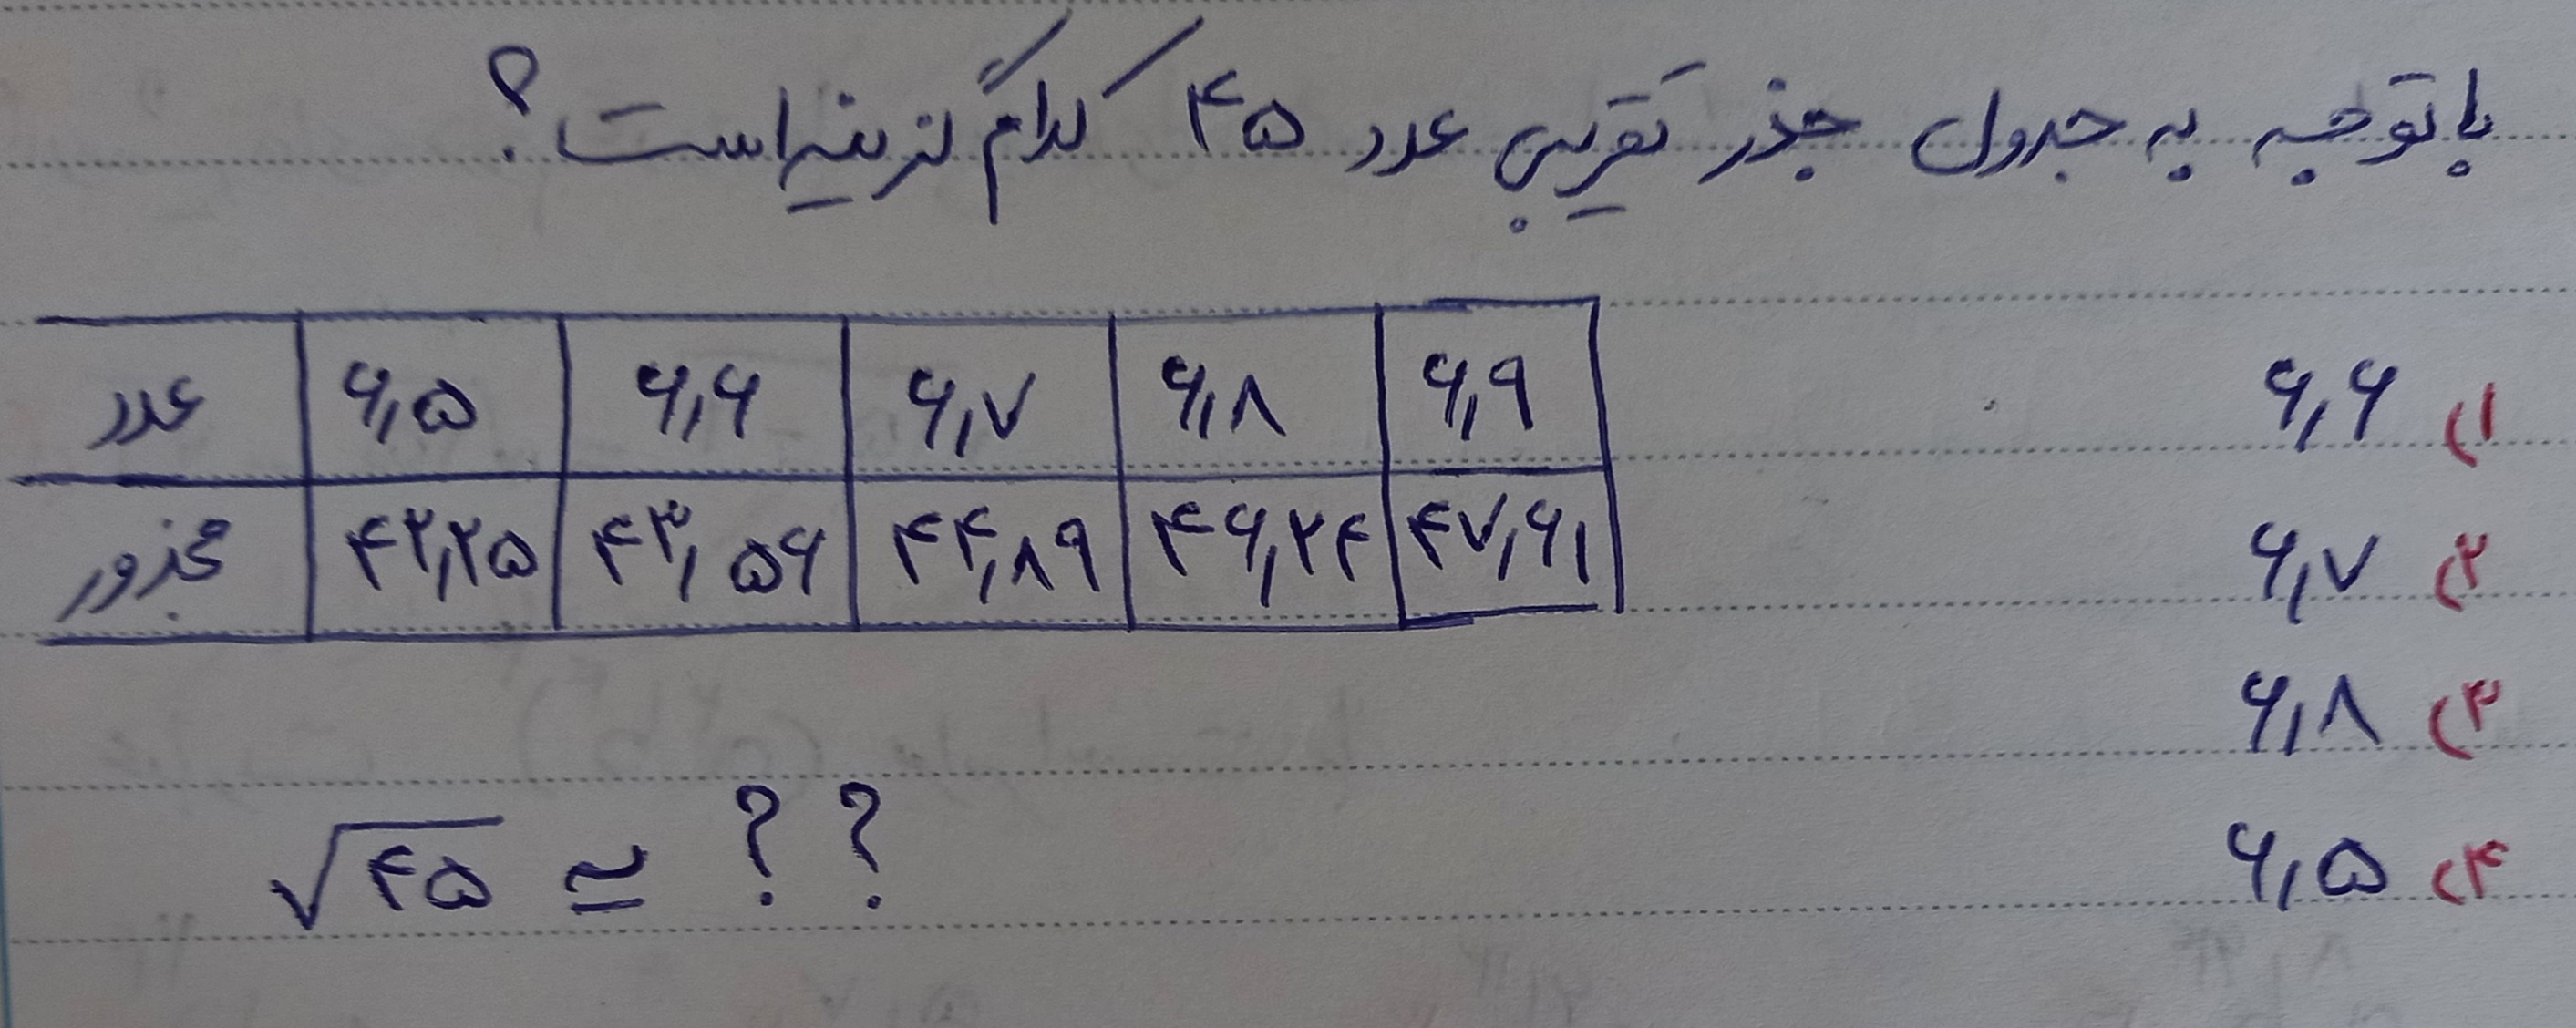 با توجه به جدول جذر تقریبی عدد ۴۵ کدام گزینه است؟
عدد ۶٫۵ ۶٫۶ ۶٫۷ ۶٫۸ ۶٫۹
مجذور ۴۲٫۲۵ ۴۳٫۵۶ ۴۴٫۸۹ ۴۶٫۲۴ ۴۷٫۶۱
۱) ۶٫۶
۲) ۶٫۷
۳) ۶٫۸
۴) ۶٫۵
√۴۵ ≃ ? ?